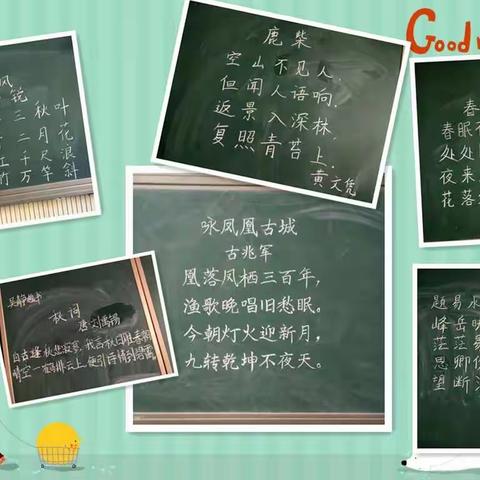 Good
风
锐
三秋叶
二月花
江千尺浪
竹万竿斜
鹿柴
空山不见人,
但闻人语响,
返景入深林,
复照青苔上。
黄文凭
春
春眠不
处处
夜来
花落
咏凤凰古城
古兆军
凰落凤栖三百年,
渔歌晚唱旧愁眠。
今朝灯火迎新月,
九转乾坤不夜天。
秋词
唐 刘禹锡
自古逢秋悲寂寥,我言秋日胜春朝
晴空一鹤排云上,便引诗情到碧霄
题易水
峰岳
茫茫
思卿
望断